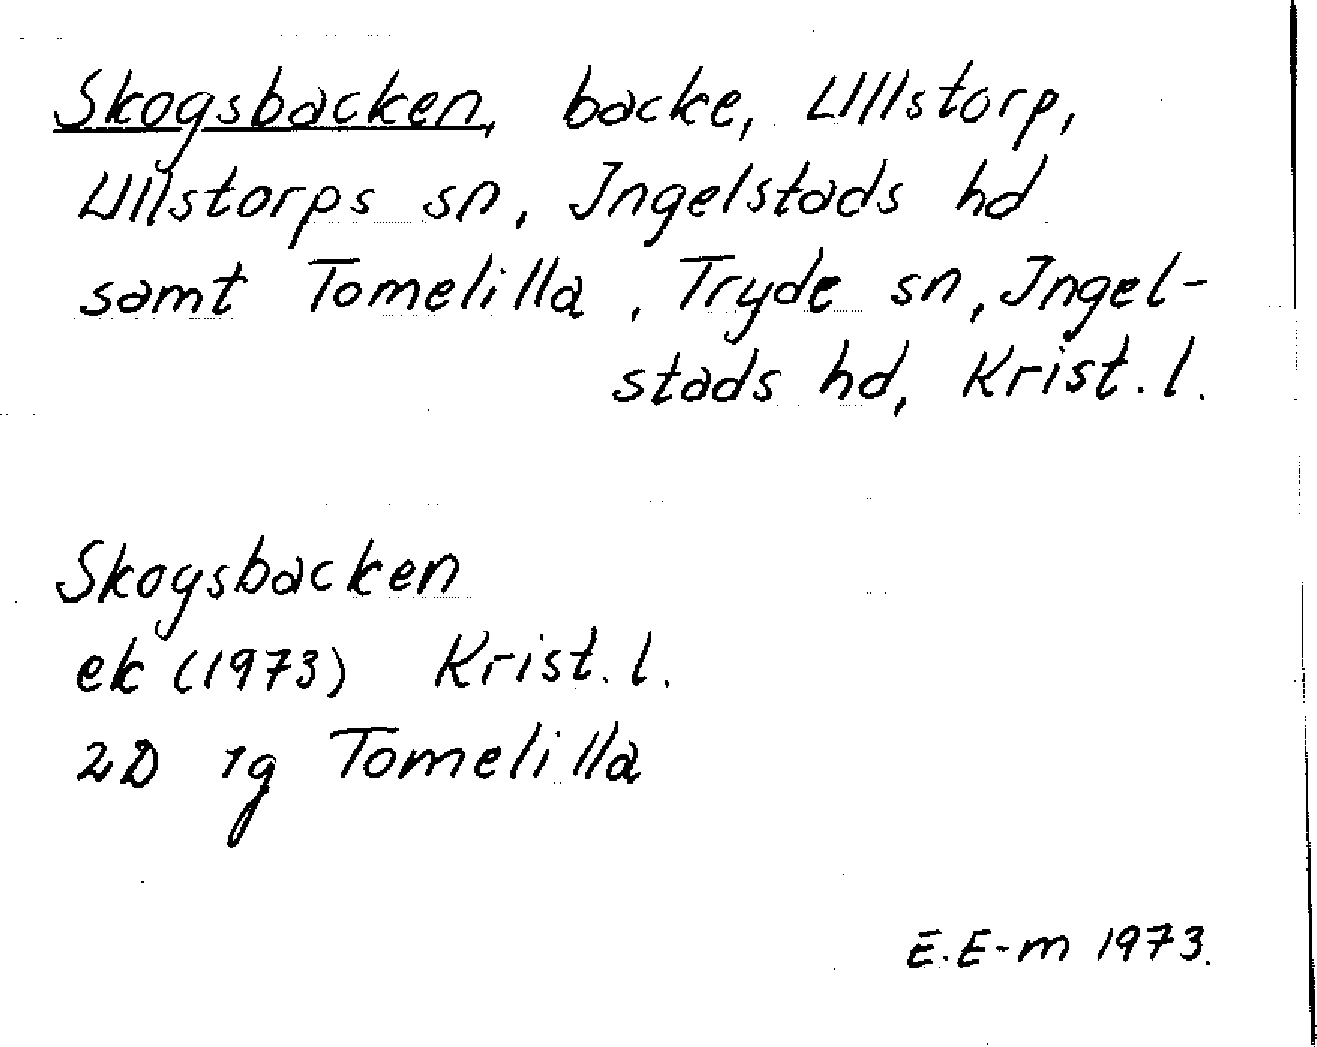 Skogsbacken, backe, Ullstorp,
Ullstorps sn, Ingelstads hd
samt Tomelilla, Tryde sn, Ingel-
stads hd, Krist. l.
Skogsbacken
ek (1973) Krist. l.
2D 1g Tomelilla
E.E-m 1973.